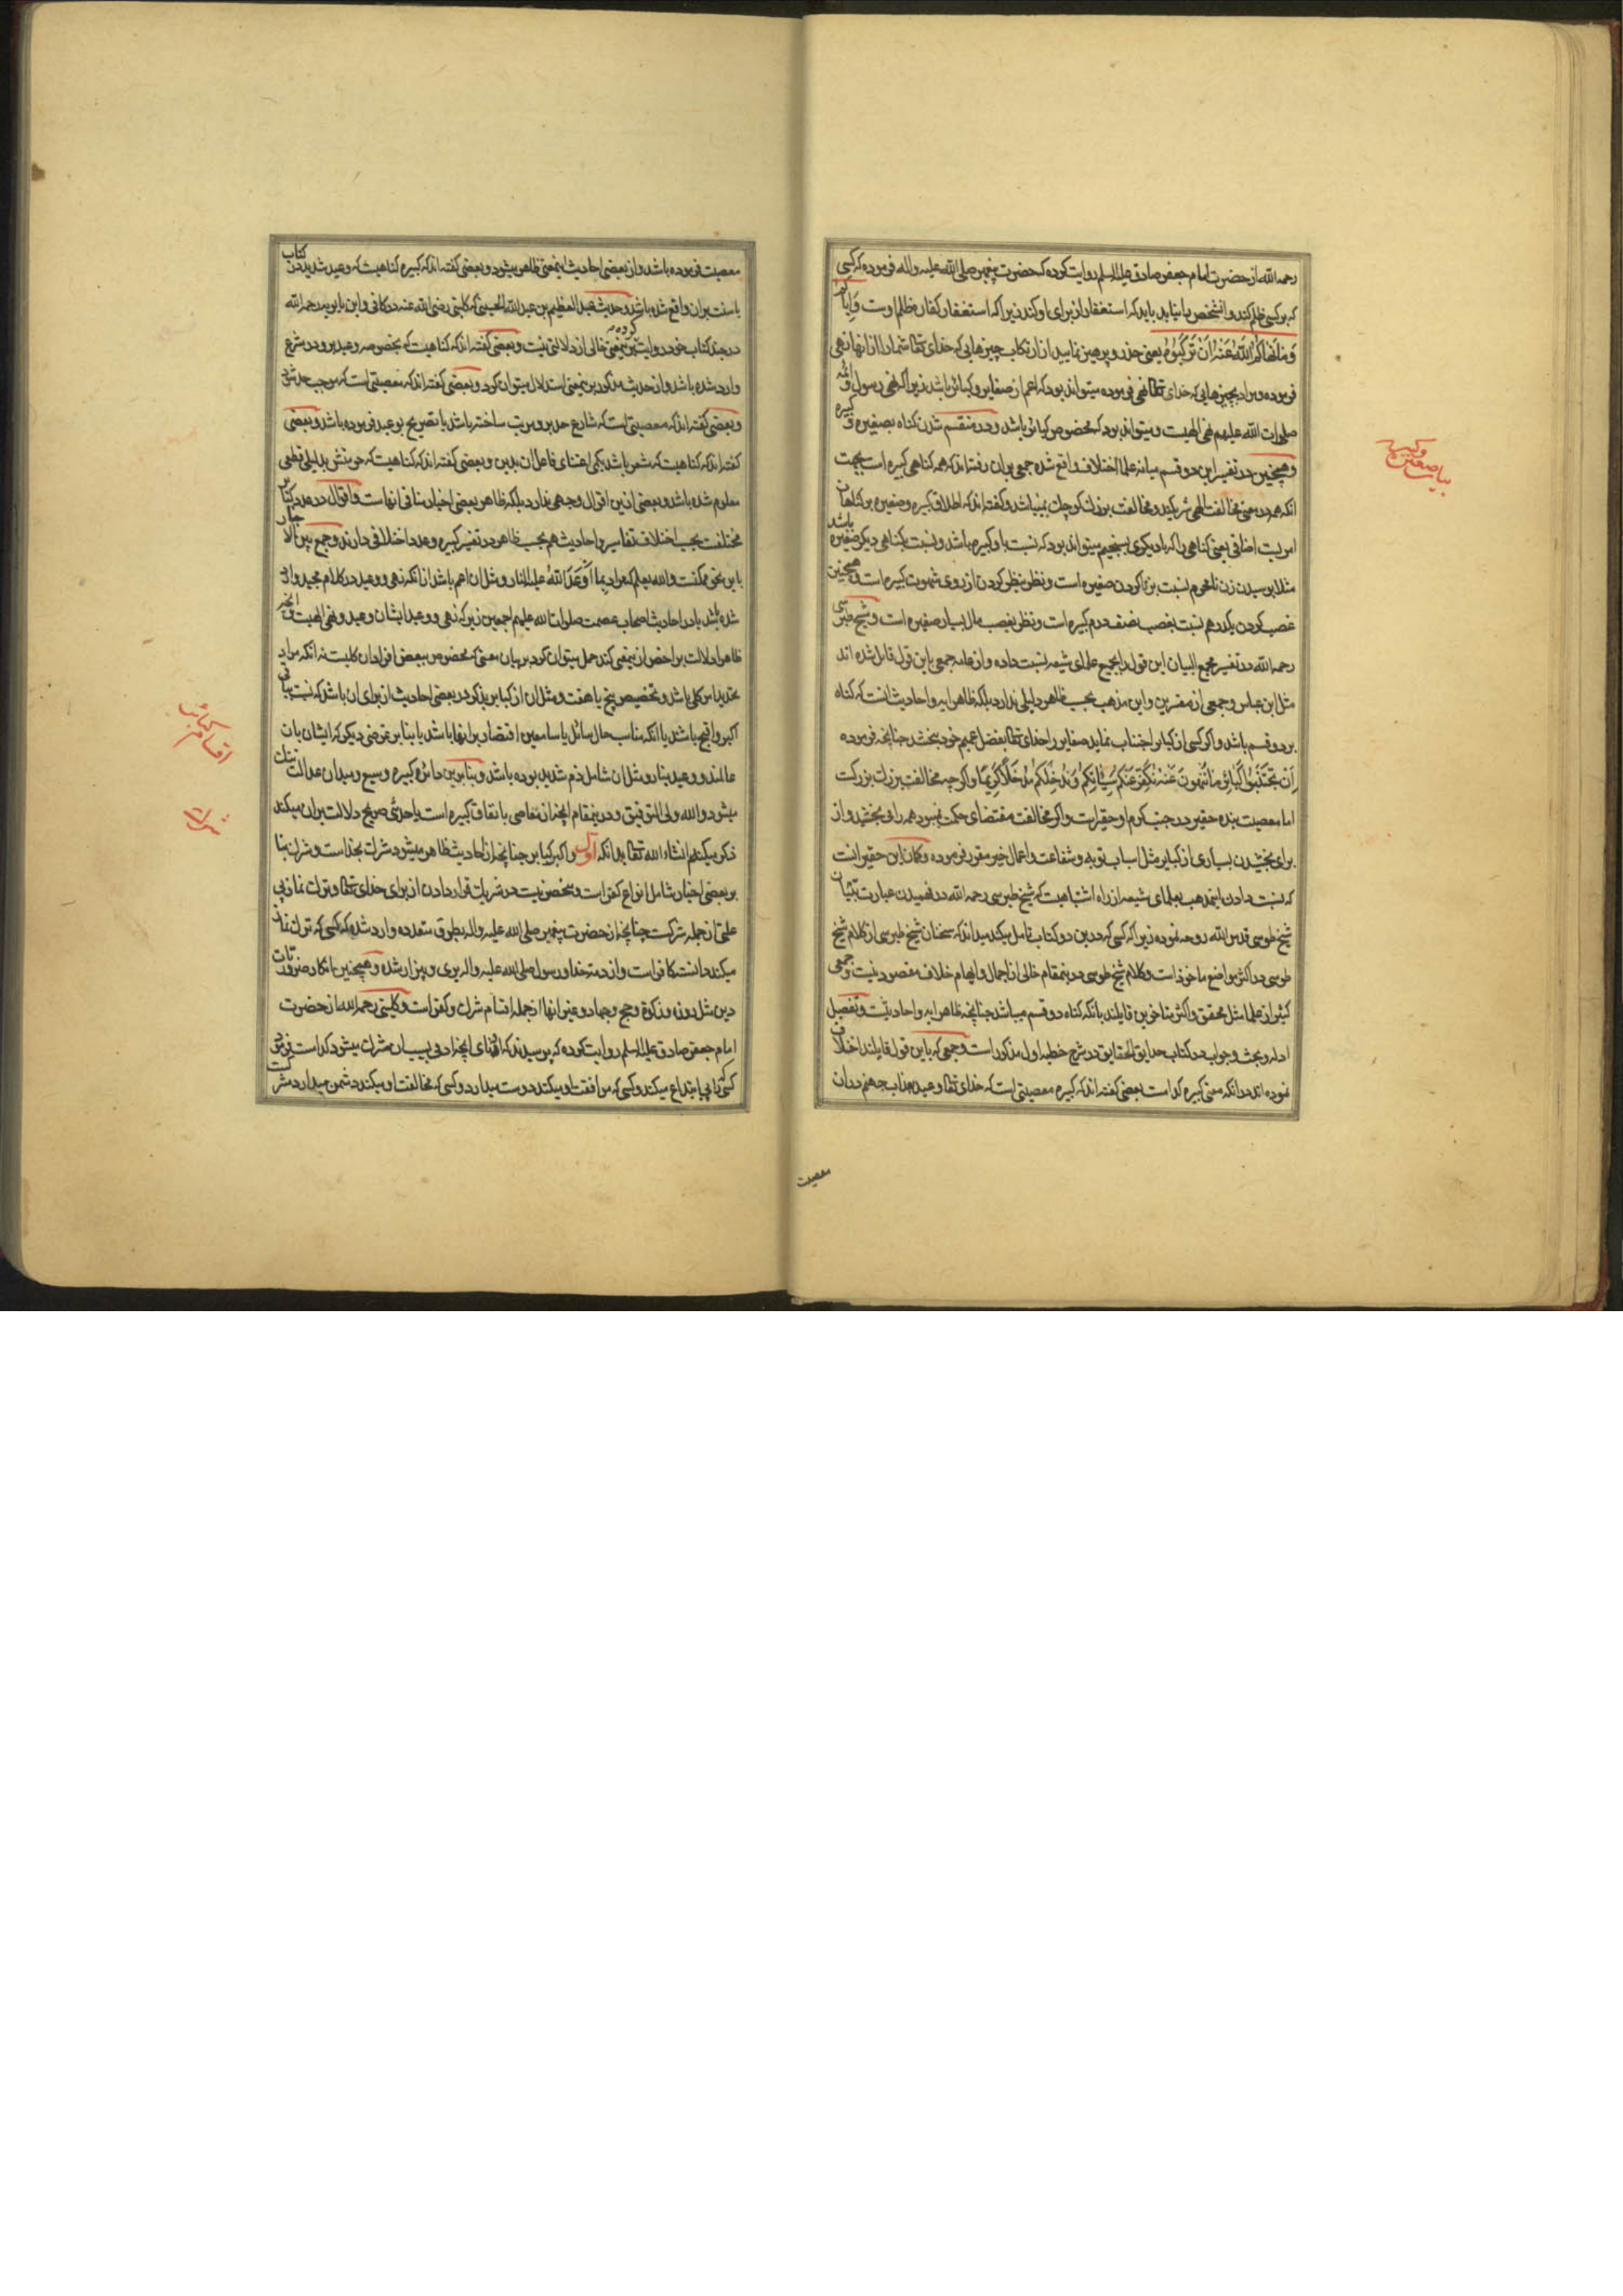 رحمه الله از حضرت امام جعفر صادق علیه السلم روایت کرده که حضرت پیغمبر صلی الله علیه واله فرموده که کسی
که بر کسی ظلم کند و انشخص را نیابد باید که استغفار از برای او کند زیرا که استغفار کفاره ظلم اوست وایاکم
وَمَا نَهَاكُمُ اللّهُ عَنْهُ اَنْ تَرْكَبُوهُ یعنی حذر و پرهیز نمایید از ارتکاب چیزهایی که خدای تعالی شما را از انها نهی
فرموده و مراد بچیزهایی که خدای تعالی نهی فرموده میتواند بود که اعم از صغایر و کبائر باشد زیرا که نهی رسول وائمه
صلوات الله علیهم نهی الهیست و میتواند بود که مخصوص کبائر باشد و در منقسم شدن کناه بصغیره و کبیره
و همچنین در تفسیر این دو قسم میانه علما اختلاف واقع شده جمعی بران رفته اند که همه کناهی کبیره است بجهت
انکه همه در معنی مخالفت الهی شریکند و مخالفت بزرك کوچك نمیباشد و کفته اند که اطلاق کبیره و صغیره بر کناهان
امریست اضافی یعنی کناهی را که با دیکری بسنجیم میتواند بود که نسبت باو کبیره باشد و نسبت بکناهی دیکر صغیره باشد
مثلا بوسیدن زن نامحرم نسبت بزنا کردن صغیره است و نظر بنظر کردن از روی شهوت کبیره است و همچنین
غصب کردن یکدرهم نسبت بغصب نصف درم کبیره است و نظر بغصب مال بسیار صغیره است و شیخ طبرسی
رحمه الله در تفسیر مجمع البیان این قول را بجمیع علمای شیعه نسبت داده و از عامه جمعی باین قول قائل شده اند
مثل ابن عباس و جمعی از مفسرین و این مذهب بحسب ظاهر دلیلی ندارد بلکه ظاهر ایه و احادیث انست که کناه
بر دو قسم باشد و اکر کسی از کبایر اجتناب نماید صغایر را خدای تعالی بفضل عمیم خود ببخشد چنانچه فرموده
اِنْ تَجْتَنِبُوا كَبَائِرَ مَا تُنْهَوْنَ عَنْهُ نُكَفِّرْ عَنْكُمْ سَيِّئَاتِكُمْ وَنُدْخِلْكُمْ مُدْخَلًا كَرِيمًا و اکر چه مخالفت بزرك بزرکست
اما معصیت بنده حقیر در جنب کرم او حقیر است و اکر مخالفت مقتضای حکمت نمیبود همه را می بخشید و از
برای بخشیدن بسیاری از کبایر مثل اسباب توبه و شفاعت و اعمال خیر مقرر فرموده و کمان این حقیر انست
که نسبت دادن اینمذهب بعلمای شیعه از راه اشتباهیست که شیخ طبرسی رحمه الله در فهمیدن عبارت تبیان
شیخ طوسی قدس الله روحه نموده زیرا که کسی که درین دو کتاب تامل میکند میداند که سخنان شیخ طبرسی از کلام شیخ
طوسی در اکثر مواضع ماخوذ است و کلام شیخ طوسی در ینمقام خالی از اجمال و ایهام خلاف مقصود نیست و جمعی
کثیر از علما مثل محقق و اکثر متاخرین قایلند بانکه کناه دو قسم میباشد چنانچه ظاهر ایه و احادیثست و تفصیل
ادله و بحث و جواب در کتاب حدایق الحقایق در شرح خطبه اول مذکور است و جمعی که باین قول قایلند اختلاف
نموده اند در انکه معنی کبیره کدامست بعضی کفته اند که کبیره معصیتی است که خدای تعالی وعید بعذاب جهنم در ان
بیان صغیره وکبیره
معصیت
معصیت فرموده باشد و از بعضی احادیث اینمعنی ظاهر میشود و بعضی کفته اند که کبیره کناهیست که وعید شدید در کتاب
یا سنت بران واقع شده باشد و حدیث عبد العظیم بن عبد الله الحسینی که کلینی رضی الله عنه در کافی و ابن بابویه رحمه الله
در چند کتاب خود روایت کرده بر اینمعنی خالی از دلالتی نیست و بعضی کفته اند که کناهیست که بخصوصه وعید برو در شرع
وارد شده باشد و از حدیث مذکور بر اینمعنی استدلال میتوان کرد و بعضی کفته اند که معصیتی است که موجب حد شرعی
و بعضی کفته اند که معصیتی است که شارع حد برو مرتب ساخته باشد یا تصریح بوعید فرموده باشد و بعضی
کفته اند که کناهیست که مشعر باشد بکمی اعتنای فاعل ان بدین و بعضی کفته اند که کناهیست که حرمتش بدلیلی قطعی
معلوم شده باشد و بعضی ازین اقوال وجهی ندارد بلکه ظاهر بعضی اخبار منافی انهاست و اقوال در عدد کبائر
مختلفست بحسب اختلاف تفاسیر و احادیث هم بحسب ظاهر در تفسیر کبیره و عدد اختلافی دارند و جمع بین الاخبار
باین نحو ممکنست والله یعلم که مراد بما اَوْعَدَ اللهُ علیه النار و مثل ان اعم باشد از انکه نهی و وعید در کلام مجید واقع
شده باشد یا در احادیث اصحاب عصمت صلوات الله علیهم اجمعین زیرا که نهی و وعید ایشان وعید و نهی الهیست و انچه
ظاهرا دلالت بر اخص از ینمعنی کند حمل میتوان کرد بر بیان معنی که مخصوص ببعض افراد ان کلیست نه انکه مراد
تحدید امر کلی باشد و تخصیص پنج یا هفت و مثل ان از کبایر بذکر در بعضی احادیث از برای ان باشد که نسبت بباقی
اکبر و اقبح باشد یا انکه مناسب حال سائل یا سامعین اقتصار بر انها باشد یا بنا بر غرضی دیکر که ایشان بان
عالمند و وعید بنار و مثل ان شامل ذم شدید بوده باشد و بنا برین دائره کبیره وسیع و میدان عدالت تنك
میشود والله ولی التوفیق و در ینمقام انچه از معاصی باتفاق کبیره است یا حدیثی صریح دلالت بران میکند
ذکر میکنم انشاء الله تعالی بدانکه اول و اکبر کبایر چنانچه از احادیث ظاهر میشود شرك بخداست و شرك بنا
بر بعضی اخبار شامل انواع کفر است و منحصر نیست در شریك قرار دادن از برای خدای تعالی و ترك نماز بی
علتی از جمله شرکست چنانچه از حضرت پیغمبر صلی الله علیه واله بطرق متعدده وارد شده که کسی که ترك نماز
میکند دانسته کافر است و از ذمت خدا و رسول صلی الله علیه واله بری و بیزار شده و همچنین انکار ضروریات
دین مثل روزه و زکوة و حج و جهاد و غیر انها از جمله اقسام شرك و کفر است و کلینی رحمه الله از حضرت
امام جعفر صادق علیه السلم روایت کرده که پرسیدند که ادنای انچه ادمی بسبب ان مشرك میشود کدامست فرمود
کسی که رایی اختراع میکند و کسی که موافقت او میکند دوست میدارد و کسی که مخالفت او میکند دشمن میدارد مشرکست
اقسام کبائر
شرك